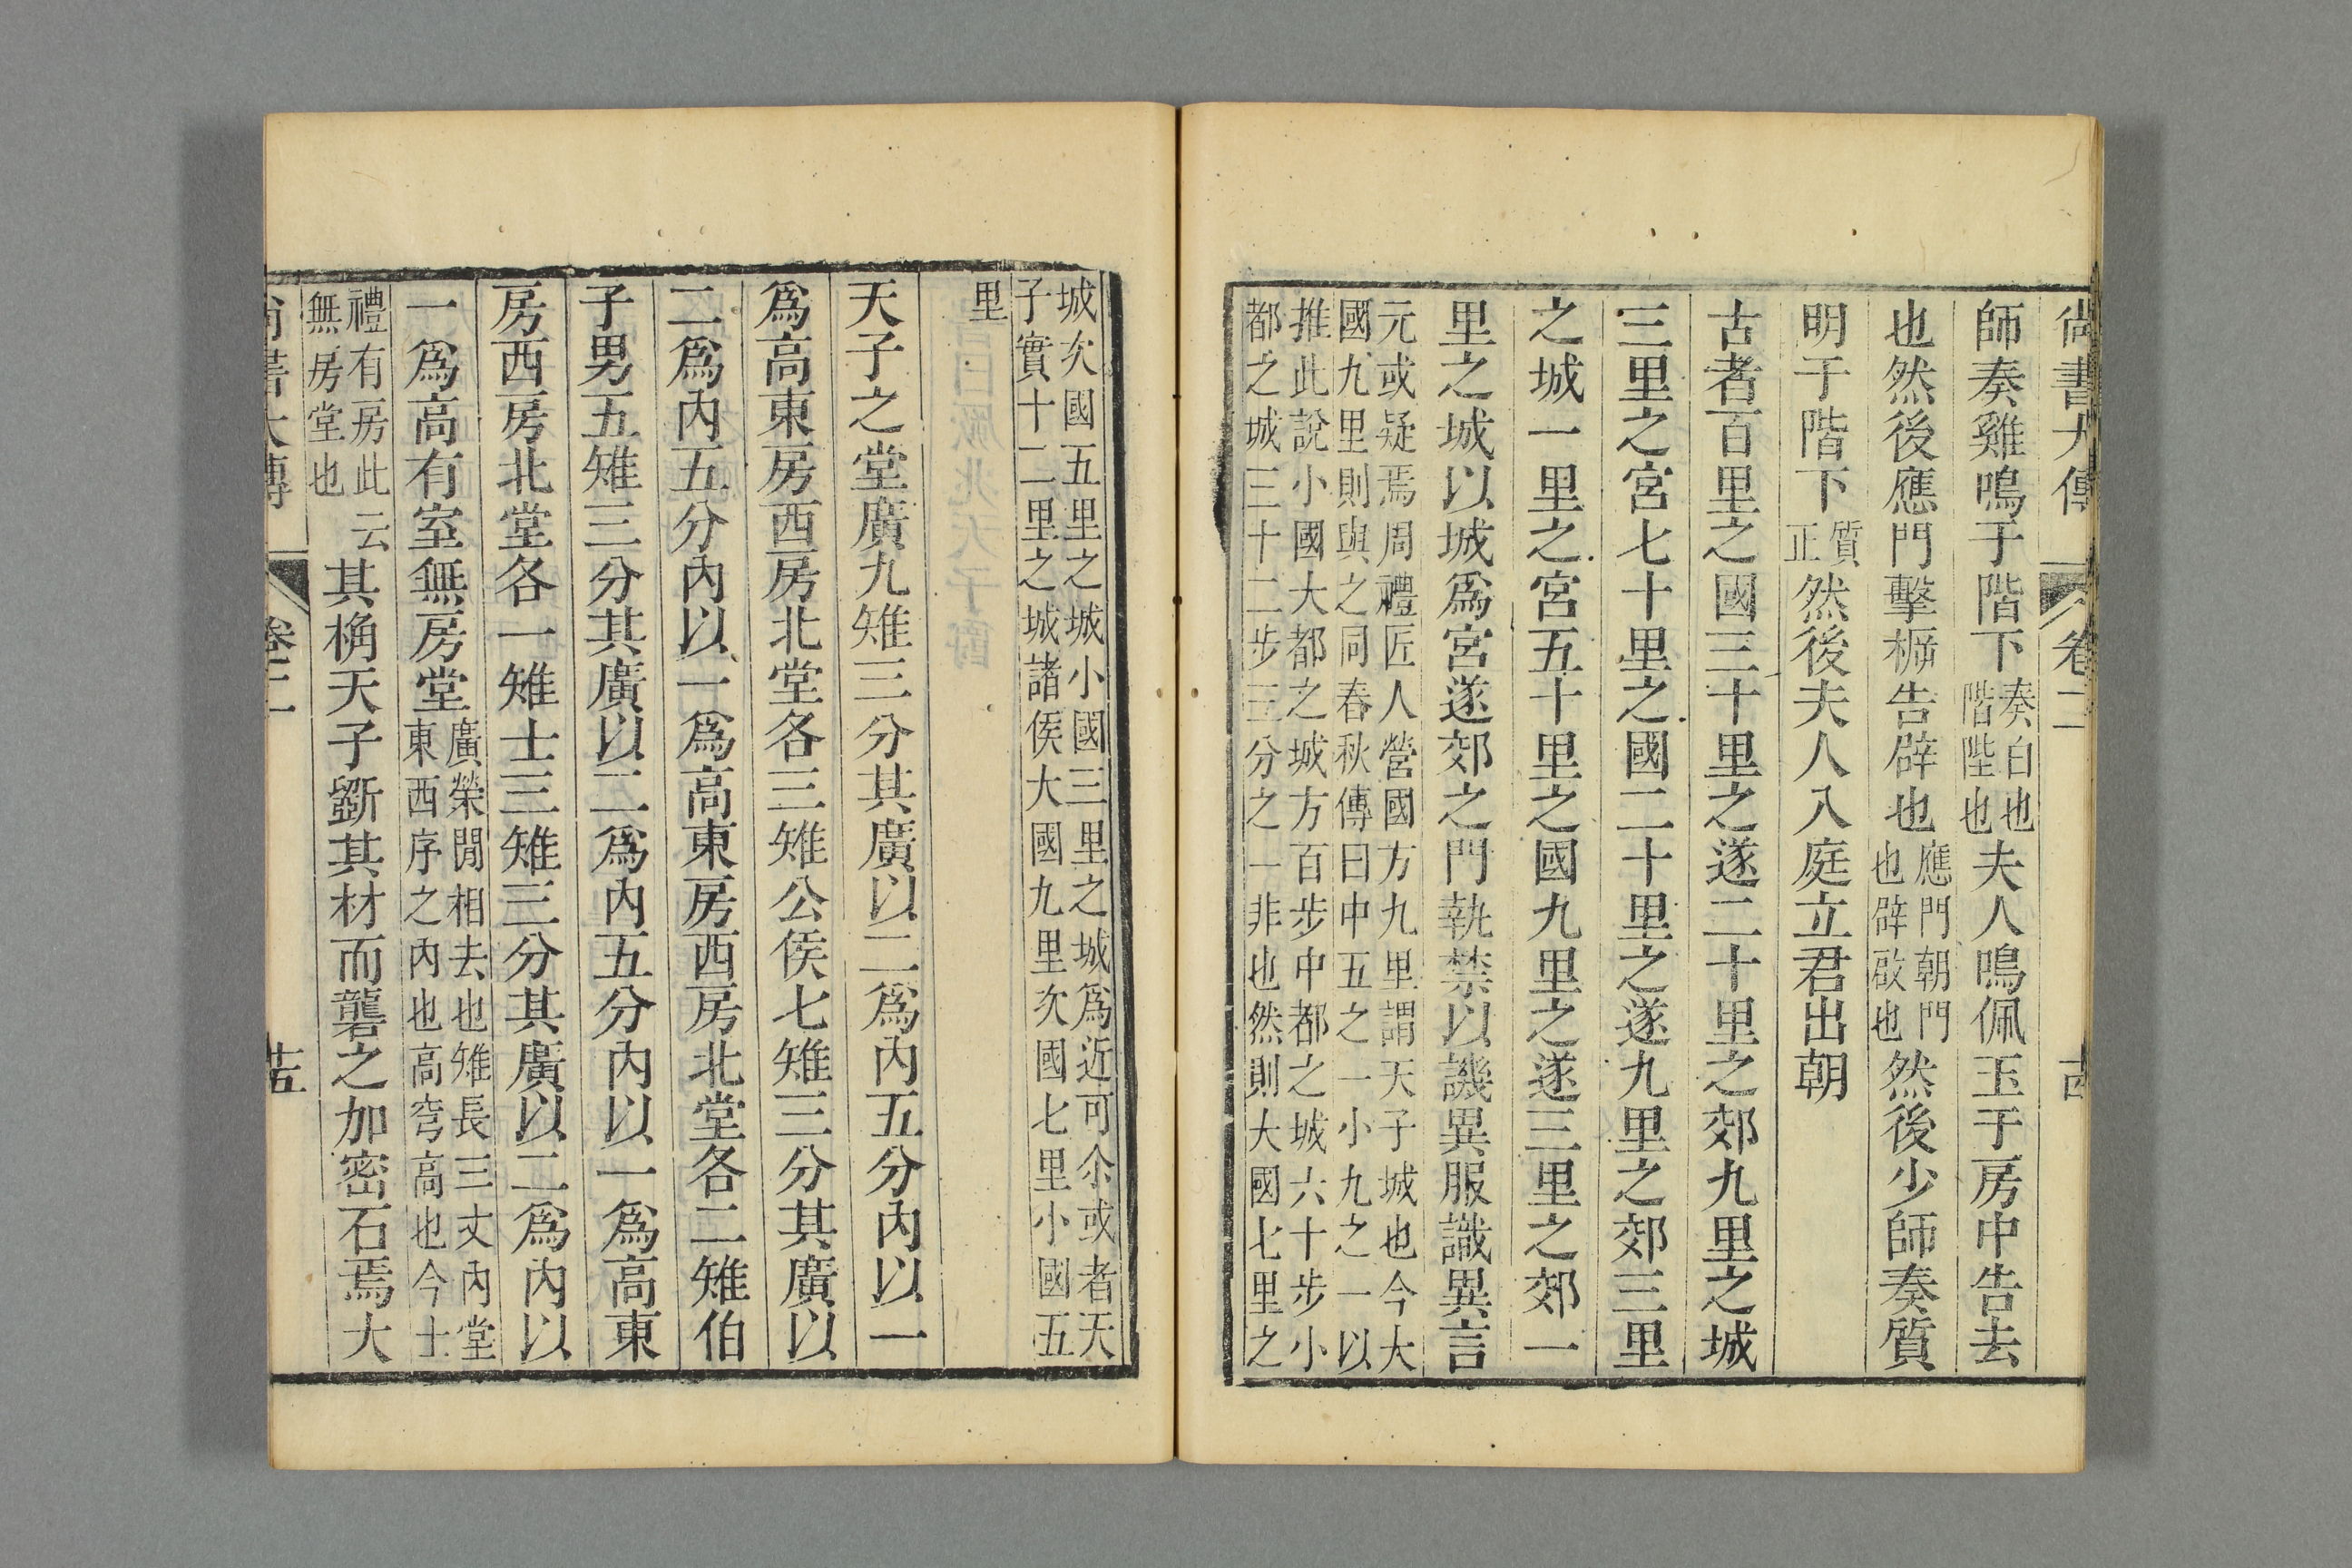 尚書大傳
卷二
師奏雞鳴于階下奏白也階陛也夫人鳴佩玉于房中告去
也然後應門擊柝告辟也應門朝門也辟啟也然後少師奏質
明于階下質正然後夫人入庭立君出朝
古者百里之國三十里之遂二十里之郊九里之城
三里之宮七十里之國二十里之遂九里之郊三里
之城一里之宮五十里之國九里之遂三里之郊一
里之城以城爲宮遂郊之門執禁以譏異服識異言
元或疑焉周禮匠人營國方九里謂天子城也今大
國九里則與之同春秋傳曰中五之一小九之一以
推此說小國大都之城方百步中都之城六十步小
都之城三十二步三分之一非也然則大國七里之
城次國五里之城小國三里之城爲近可尒或者天
子實十二里之城諸侯大國九里次國七里小國五
里
天子之堂廣九雉三分其廣以二爲內五分內以一
爲高東房西房北堂各三雉公侯七雉三分其廣以
二爲內五分內以一爲高東房西房北堂各二雉伯
子男五雉三分其廣以二爲內五分內以一爲高東
房西房北堂各一雉士三雉三分其廣以二爲內以
一爲高有室無房堂廣榮閒相去也雉長三丈內堂東西序之內也高穹高也今士
禮有房此云無房堂也其桷天子斲其材而礱之加密石焉大
尚書大傳
卷二
十五